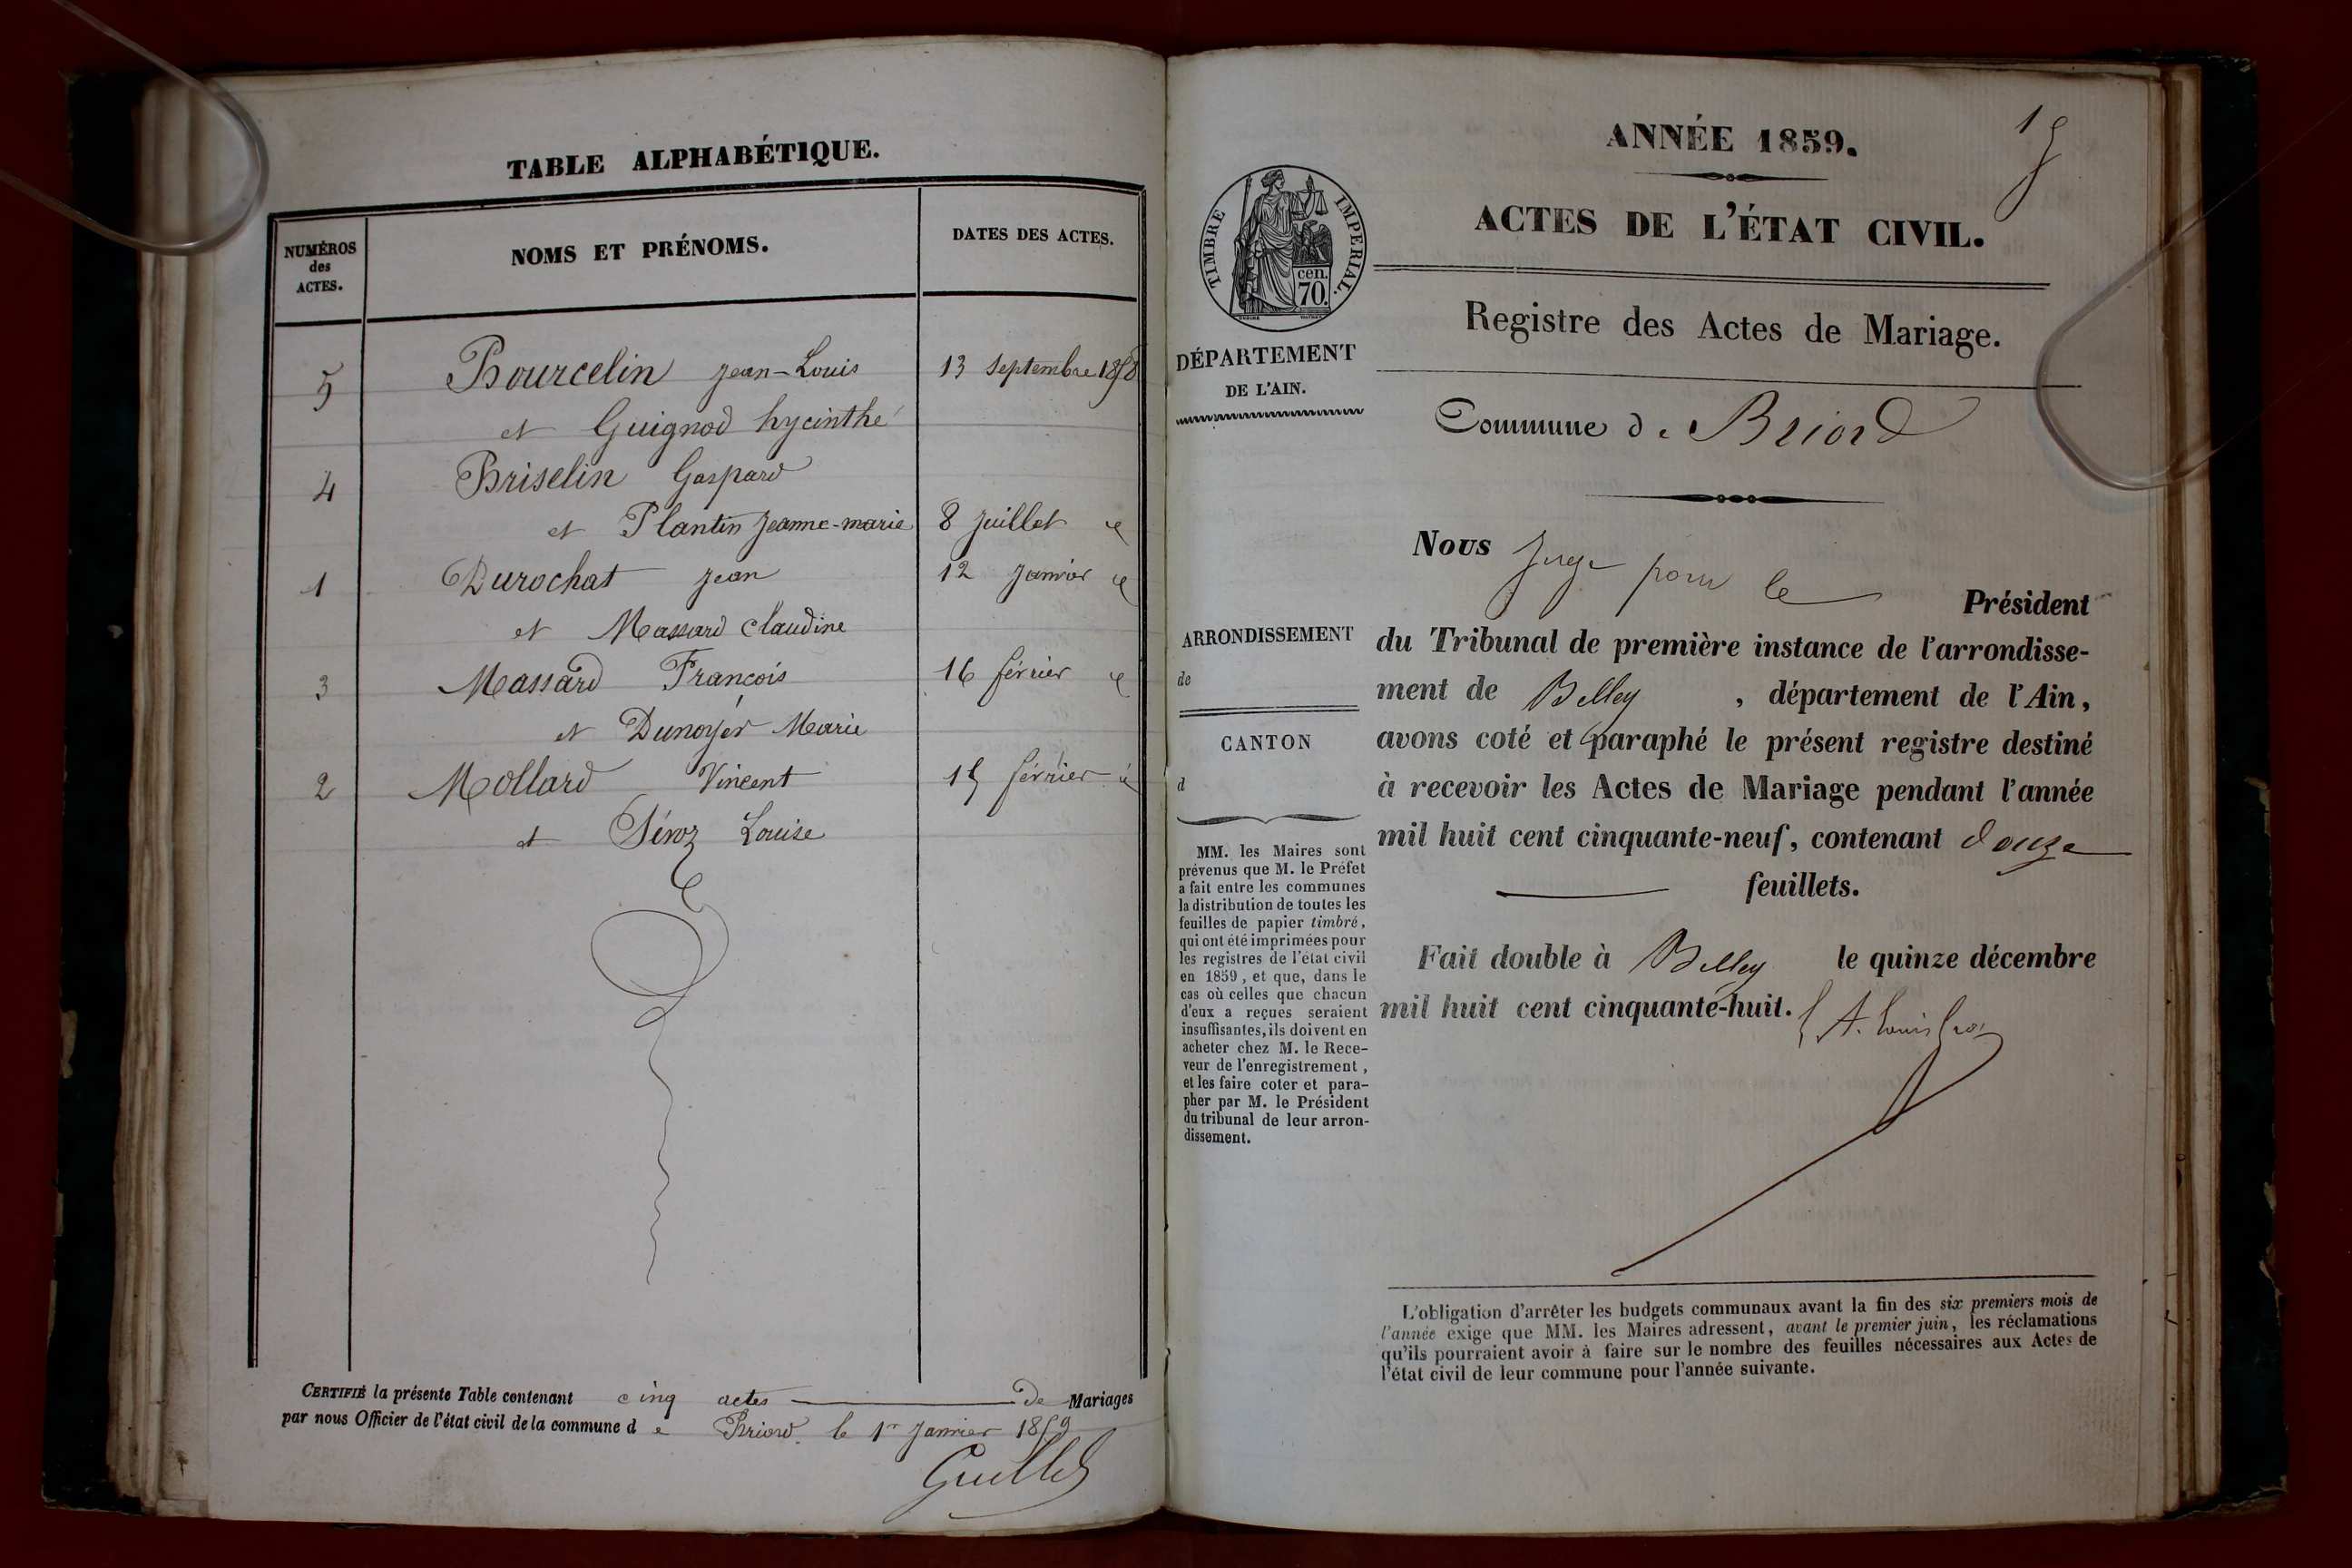 TABLE ALPHABÉTIQUE.
NUMÉROS
des
ACTES.
NOMS ET PRÉNOMS.
DATES DES ACTES.
5 Bourcelin Jean-Louis 13 Septembre 1858
et Guignod hycinthe
4 Briselin Gaspard
et Plantin Jeanne-marie 8 Juillet id
1 Durochat Jean 12 Janvier id
et Massard Claudine
3 Massard François 16 février id
et Dunoyer Marie
2 Mollard Vincent 15 février id
et Séroz Louise
CERTIFIÉ la présente Table contenant cinq actes de Mariages
par nous Officier de l'état civil de la commune de Briord. le 1er Janvier 1859
ANNÉE 1859.
ACTES DE L'ÉTAT CIVIL.
TIMBRE IMPERIAL.
cen.
70.
DÉPARTEMENT
DE L'AIN.
Registre des Actes de Mariage.
Commune de Briord
Nous Juge pour le Président
du Tribunal de première instance de l'arrondisse-
ment de Belley, département de l'Ain,
avons coté et paraphé le présent registre destiné
à recevoir les Actes de Mariage pendant l'année
mil huit cent cinquante-neuf, contenant douze
feuillets.
Fait double à Belley le quinze décembre
mil huit cent cinquante-huit.
ARRONDISSEMENT
de
CANTON
d
MM. les Maires sont
prévenus que M. le Préfet
a fait entre les communes
la distribution de toutes les
feuilles de papier timbré,
qui ont été imprimées pour
les registres de l'état civil
en 1859, et que, dans le
cas où celles que chacun
d'eux a reçues seraient
insuffisantes, ils doivent en
acheter chez M. le Rece-
veur de l'enregistrement,
et les faire coter et para-
pher par M. le Président
du tribunal de leur arron-
dissement.
L'obligation d'arrêter les budgets communaux avant la fin des six premiers mois de
l'année exige que MM. les Maires adressent, avant le premier juin, les réclamations
qu'ils pourraient avoir à faire sur le nombre des feuilles nécessaires aux Actes de
l'état civil de leur commune pour l'année suivante.